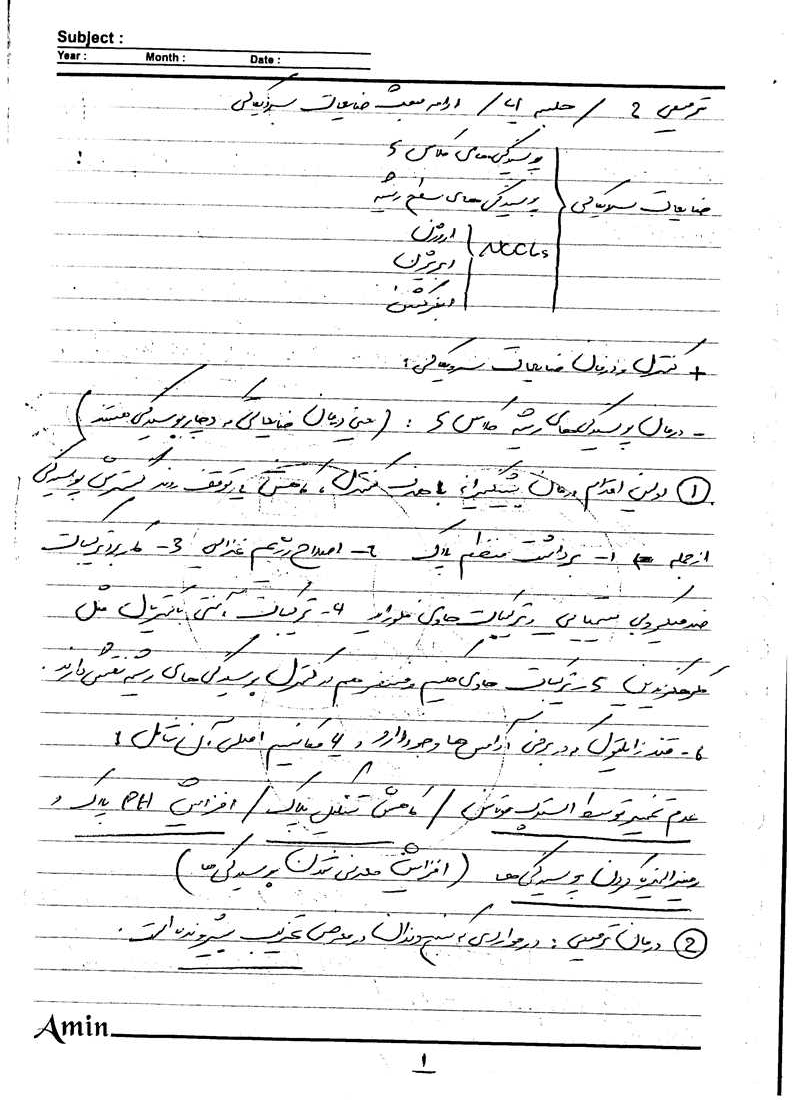 Subject :
Year : Month : Date :
ترمیمی 2 / جلسه ۱۴ / ادامه مبحث ضایعات سرویکالی
پوسیدگی های کلاس 5
ضایعات سرویکالی
پوسیدگی های سطح ریشه
NCCLs
اروژن
ابریژن
ابفرکشن
+ کنترل و درمان ضایعات سرویکالی :
- درمان پوسیدگی های ریشه کلاس 5 : (یعنی درمان ضایعاتی که دچار پوسیدگی هستند)
① اولین اقدام درمان پیشگیرانه با هدف کنترل، کاهش یا توقف روند گسترش پوسیدگی
ازجمله ← ۱- برداشت منظم پلاک ۲- اصلاح رژیم غذایی 3- کاربرد ترکیبات
ضد میکروبی شیمیایی و ترکیبات حاوی فلوراید ۴- ترکیبات آنتی باکتریال مثل
کلرهگزیدین 5- ترکیبات حاوی کلسیم و فسفر هم در کنترل پوسیدگی های ریشه نقش دارند.
۶- قند زایلیتول که در برخی آدامس ها وجود دارد و ۴ مکانیسم اصلی آن شامل :
عدم تخمیر توسط استرپ موتانس / کاهش تشکیل پلاک / افزایش PH پلاک و
رمینرالیزه کردن پوسیدگی ها (افزایش معدنی شدن پوسیدگی ها)
② درمان ترمیمی : در مواردی که نسج دندان در معرض تخریب پیشرونده است.
Amin
۱